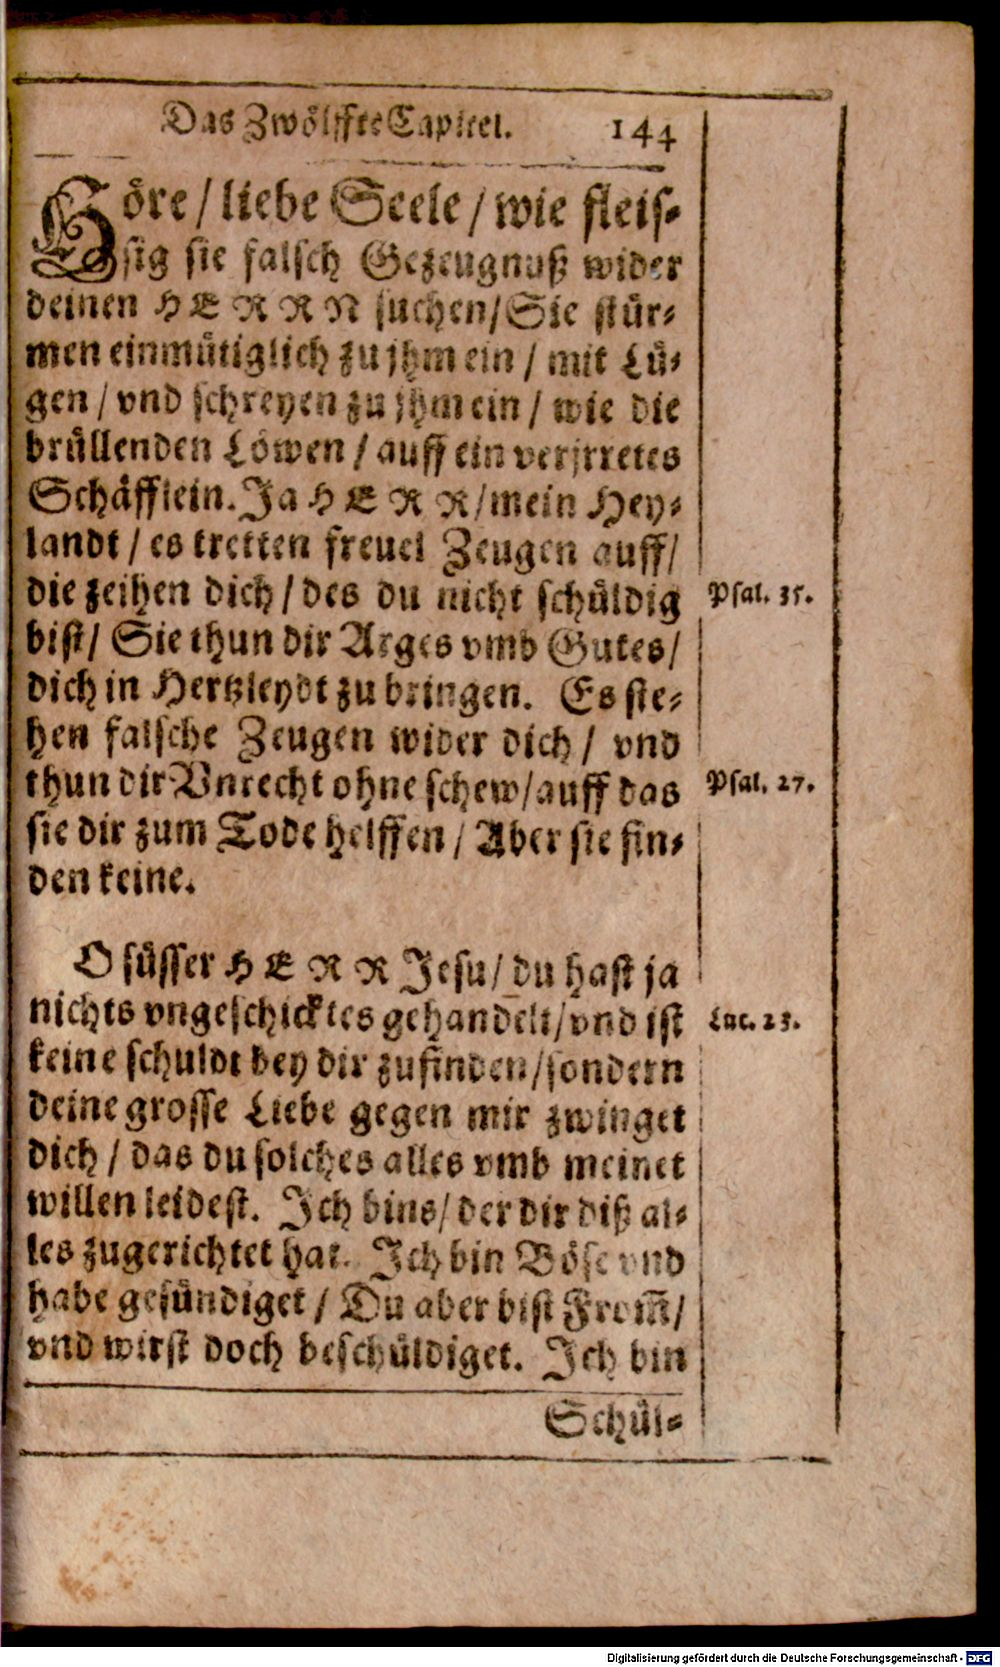 Das Zwölffte Capitel. 144
Höre / liebe Seele / wie fleis-
sig sie falsch Gezeugnuß wider
deinen HERRN suchen/ Sie stür-
men einmütiglich zu jhm ein / mit Lü-
gen / vnd schreyen zu jhm ein / wie die
brüllenden Löwen / auff ein verjrretes
Schäfflein. Ja HERR/ mein Hey-
landt / es tretten freuel Zeugen auff/
die zeihen dich / des du nicht schüldig
Psal. 35.
bist/ Sie thun dir Arges vmb Gutes/
dich in Hertzleydt zu bringen. Es ste-
hen falsche Zeugen wider dich / vnd
thun dir Vnrecht ohne schew/ auff das
Psal. 27.
sie dir zum Tode helffen / Aber sie fin-
den keine.
O süsser HERR Jesu/ du hast ja
nichts vngeschicktes gehandelt/ vnd ist
Luc. 23.
keine schuldt bey dir zufinden/ sondern
deine grosse Liebe gegen mir zwinget
dich / das du solches alles vmb meinet
willen leidest. Ich bins/ der dir diß al-
les zugerichtet hat. Ich bin Böse vnd
habe gesündiget / Du aber bist From̃/
vnd wirst doch beschüldiget. Ich bin
Schül-
Digitalisierung gefördert durch die Deutsche Forschungsgemeinschaft - DFG